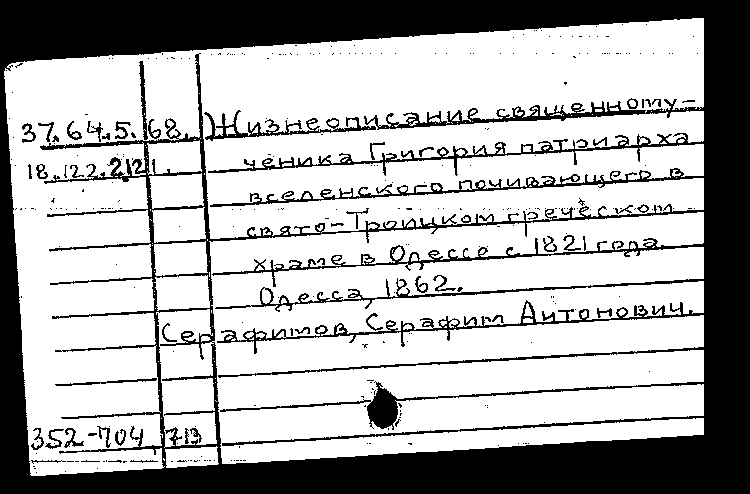 37.64.5.68. Жизнеописание священному-
18.122.2121. ченика Григория патриарха
вселенского почивающего в
свято-Троицком греческом
храме в Одессе с 1821 года.
Одесса, 1862.
Серафимов, Серафим Антонович.
352-704 713